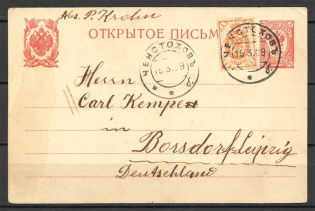 Abs. P. Krohn
ОТКРЫТОЕ ПИСЬМ
ЧЕНСТОХОВЪ
15.3.09
ЧЕНСТОХОВЪ
15.3.9
Herrn
Carl Kempe
in
Borsdorf-Leipzig
Deutschland